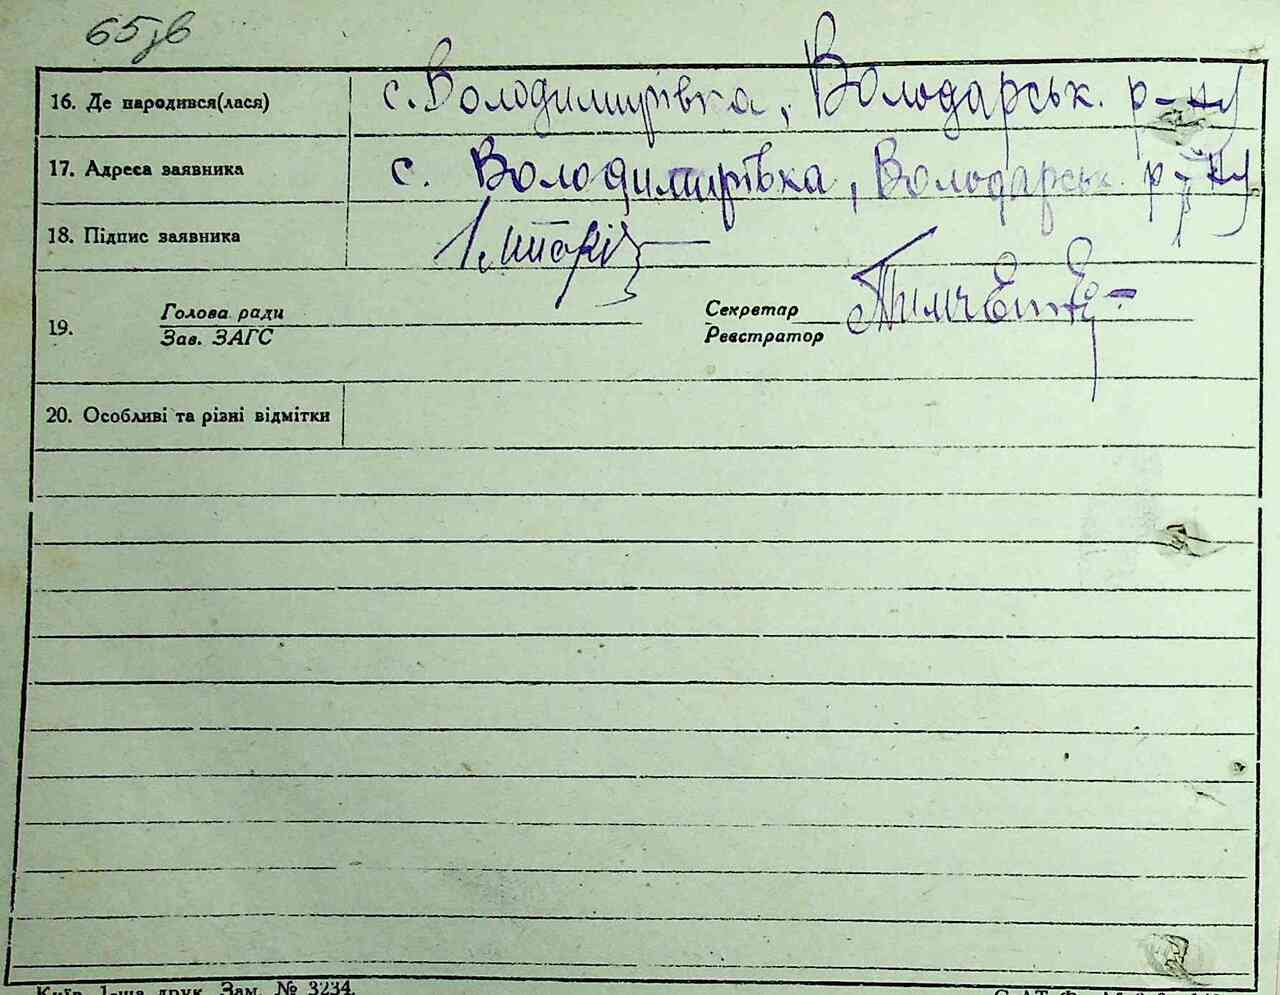 65зв
16. Де народився(лася) с. Володимирівка, Володарськ. р-ну
17. Адреса заявника с. Володимирівка, Володарськ. р-ну
18. Підпис заявника
19. Голова ради Секретар
Зав. ЗАГС Реєстратор
20. Особливі та різні відмітки
Київ, 1-ша друк. Зам. № 3234.